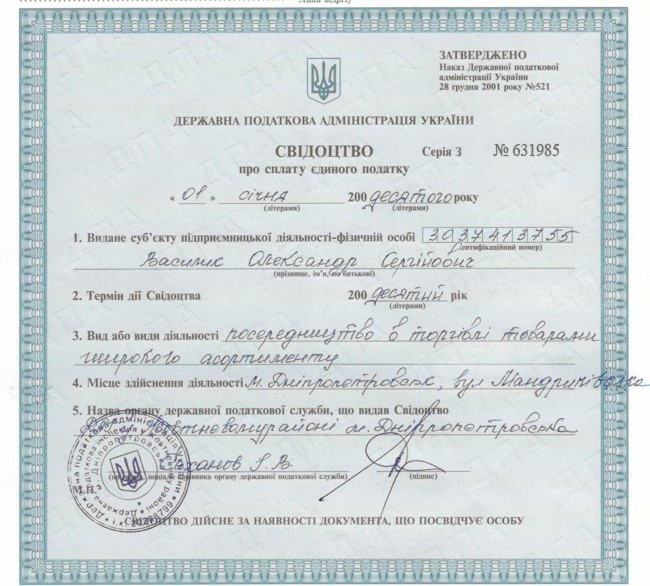 Лінія відрізу
ЗАТВЕРДЖЕНО
Наказ Державної податкової
адміністрації України
28 грудня 2001 року №521
ДЕРЖАВНА ПОДАТКОВА АДМІНІСТРАЦІЯ УКРАЇНИ
СВІДОЦТВО Серія З № 631985
про сплату єдиного податку
« 01 » січня 200 десятого року
(літерами) (літерами)
1. Видане суб'єкту підприємницької діяльності-фізичній особі 3037413755
(ідентифікаційний номер)
Василик Олександр Сергійович
(прізвище, ім'я, по батькові)
2. Термін дії Свідоцтва 200 десятий рік
(літерами)
3. Вид або види діяльності посередництво в торгівлі товарами
широкого асортименту
4. Місце здійснення діяльності м. Дніпропетровськ, вул Мандриківська
5. Назва органу державної податкової служби, що видав Свідоцтво
Жовтневому районі м. Дніпропетровська
М.П.
керівника органу державної податкової служби) (підпис)
СВІДОЦТВО ДІЙСНЕ ЗА НАЯВНОСТІ ДОКУМЕНТА, ЩО ПОСВІДЧУЄ ОСОБУ